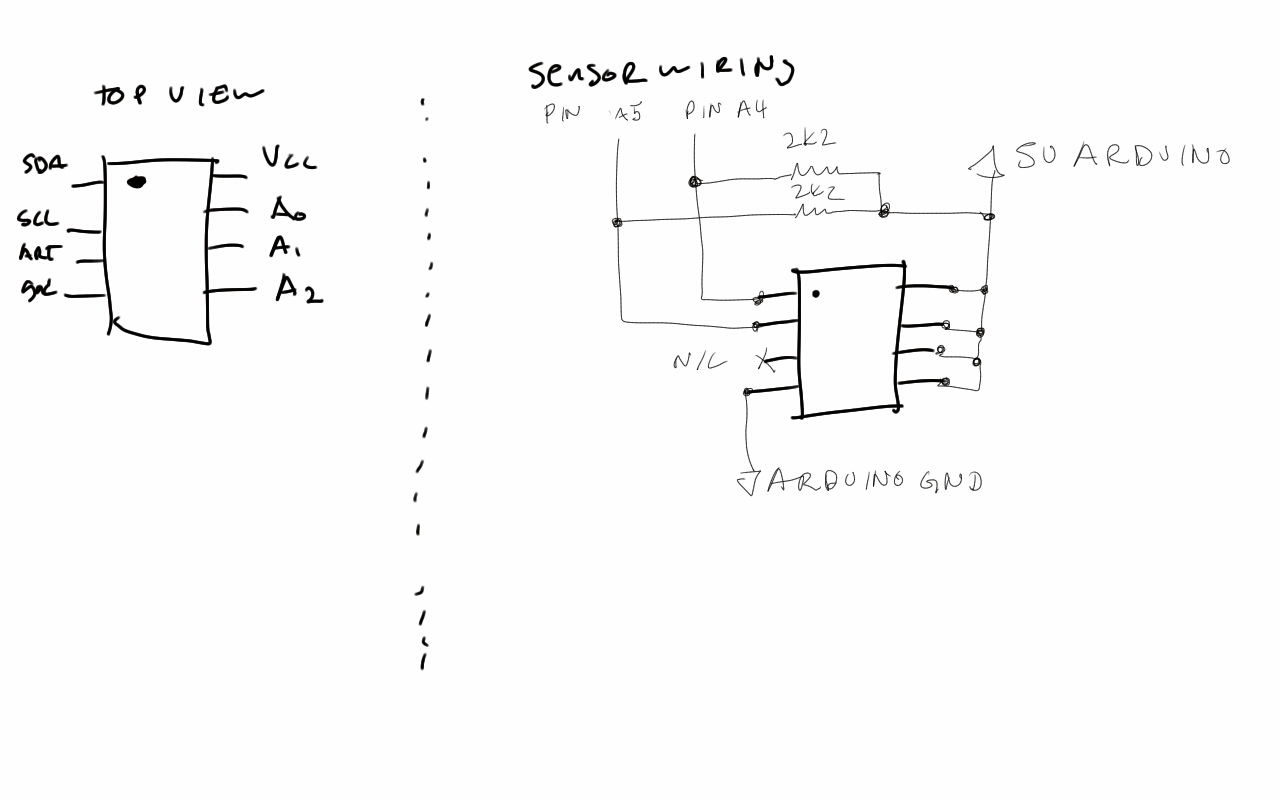 TOP VIEW
SDA
VCC
SCL
A0
ART
A1
gnd
A2
SENSOR WIRING
PIN A5
PIN A4
2K2
2K2
5V ARDUINO
N/C X
ARDUINO GND